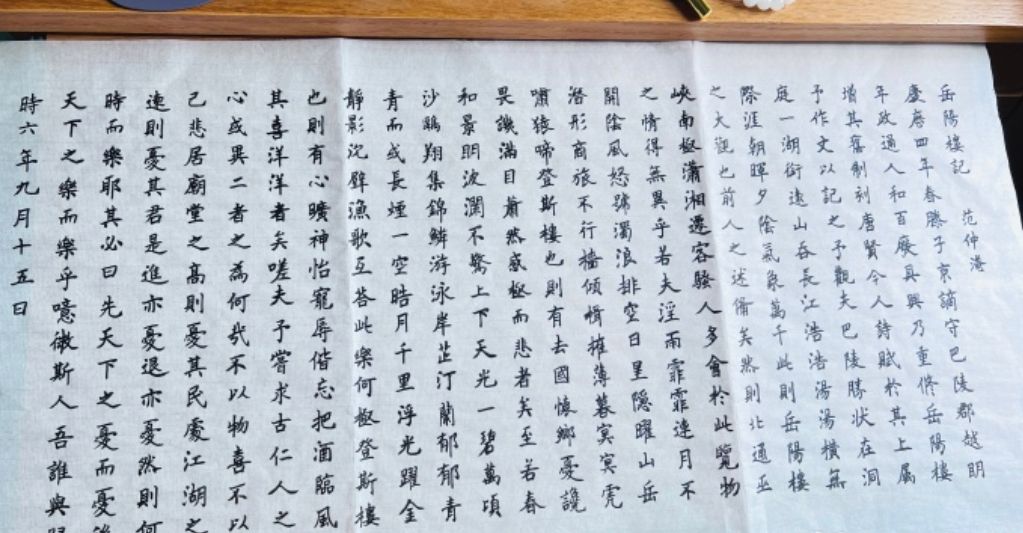 岳陽樓記 范仲淹
慶曆四年春滕子京謫守巴陵郡越明
年政通人和百廢具興乃重修岳陽樓
增其舊制刻唐賢今人詩賦於其上屬
予作文以記之予觀夫巴陵勝狀在洞
庭一湖銜遠山吞長江浩浩湯湯橫無
際涯朝暉夕陰氣象萬千此則岳陽樓
之大觀也前人之述備矣然則北通巫
峽南極瀟湘遷客騷人多會於此覽物
之情得無異乎若夫淫雨霏霏連月不
開陰風怒號濁浪排空日星隱曜山岳
潛形商旅不行檣傾楫摧薄暮冥冥虎
嘯猿啼登斯樓也則有去國懷鄉憂讒
畏譏滿目蕭然感極而悲者矣至若春
和景明波瀾不驚上下天光一碧萬頃
沙鷗翔集錦鱗游泳岸芷汀蘭郁郁青
青而或長煙一空皓月千里浮光躍金
靜影沉璧漁歌互答此樂何極登斯樓
也則有心曠神怡寵辱偕忘把酒臨風
其喜洋洋者矣嗟夫予嘗求古仁人之
心或異二者之為何哉不以物喜不以
己悲居廟堂之高則憂其民處江湖之
遠則憂其君是進亦憂退亦憂然則何
時而樂耶其必曰先天下之憂而憂後
天下之樂而樂乎噫微斯人吾誰與歸
時六年九月十五日